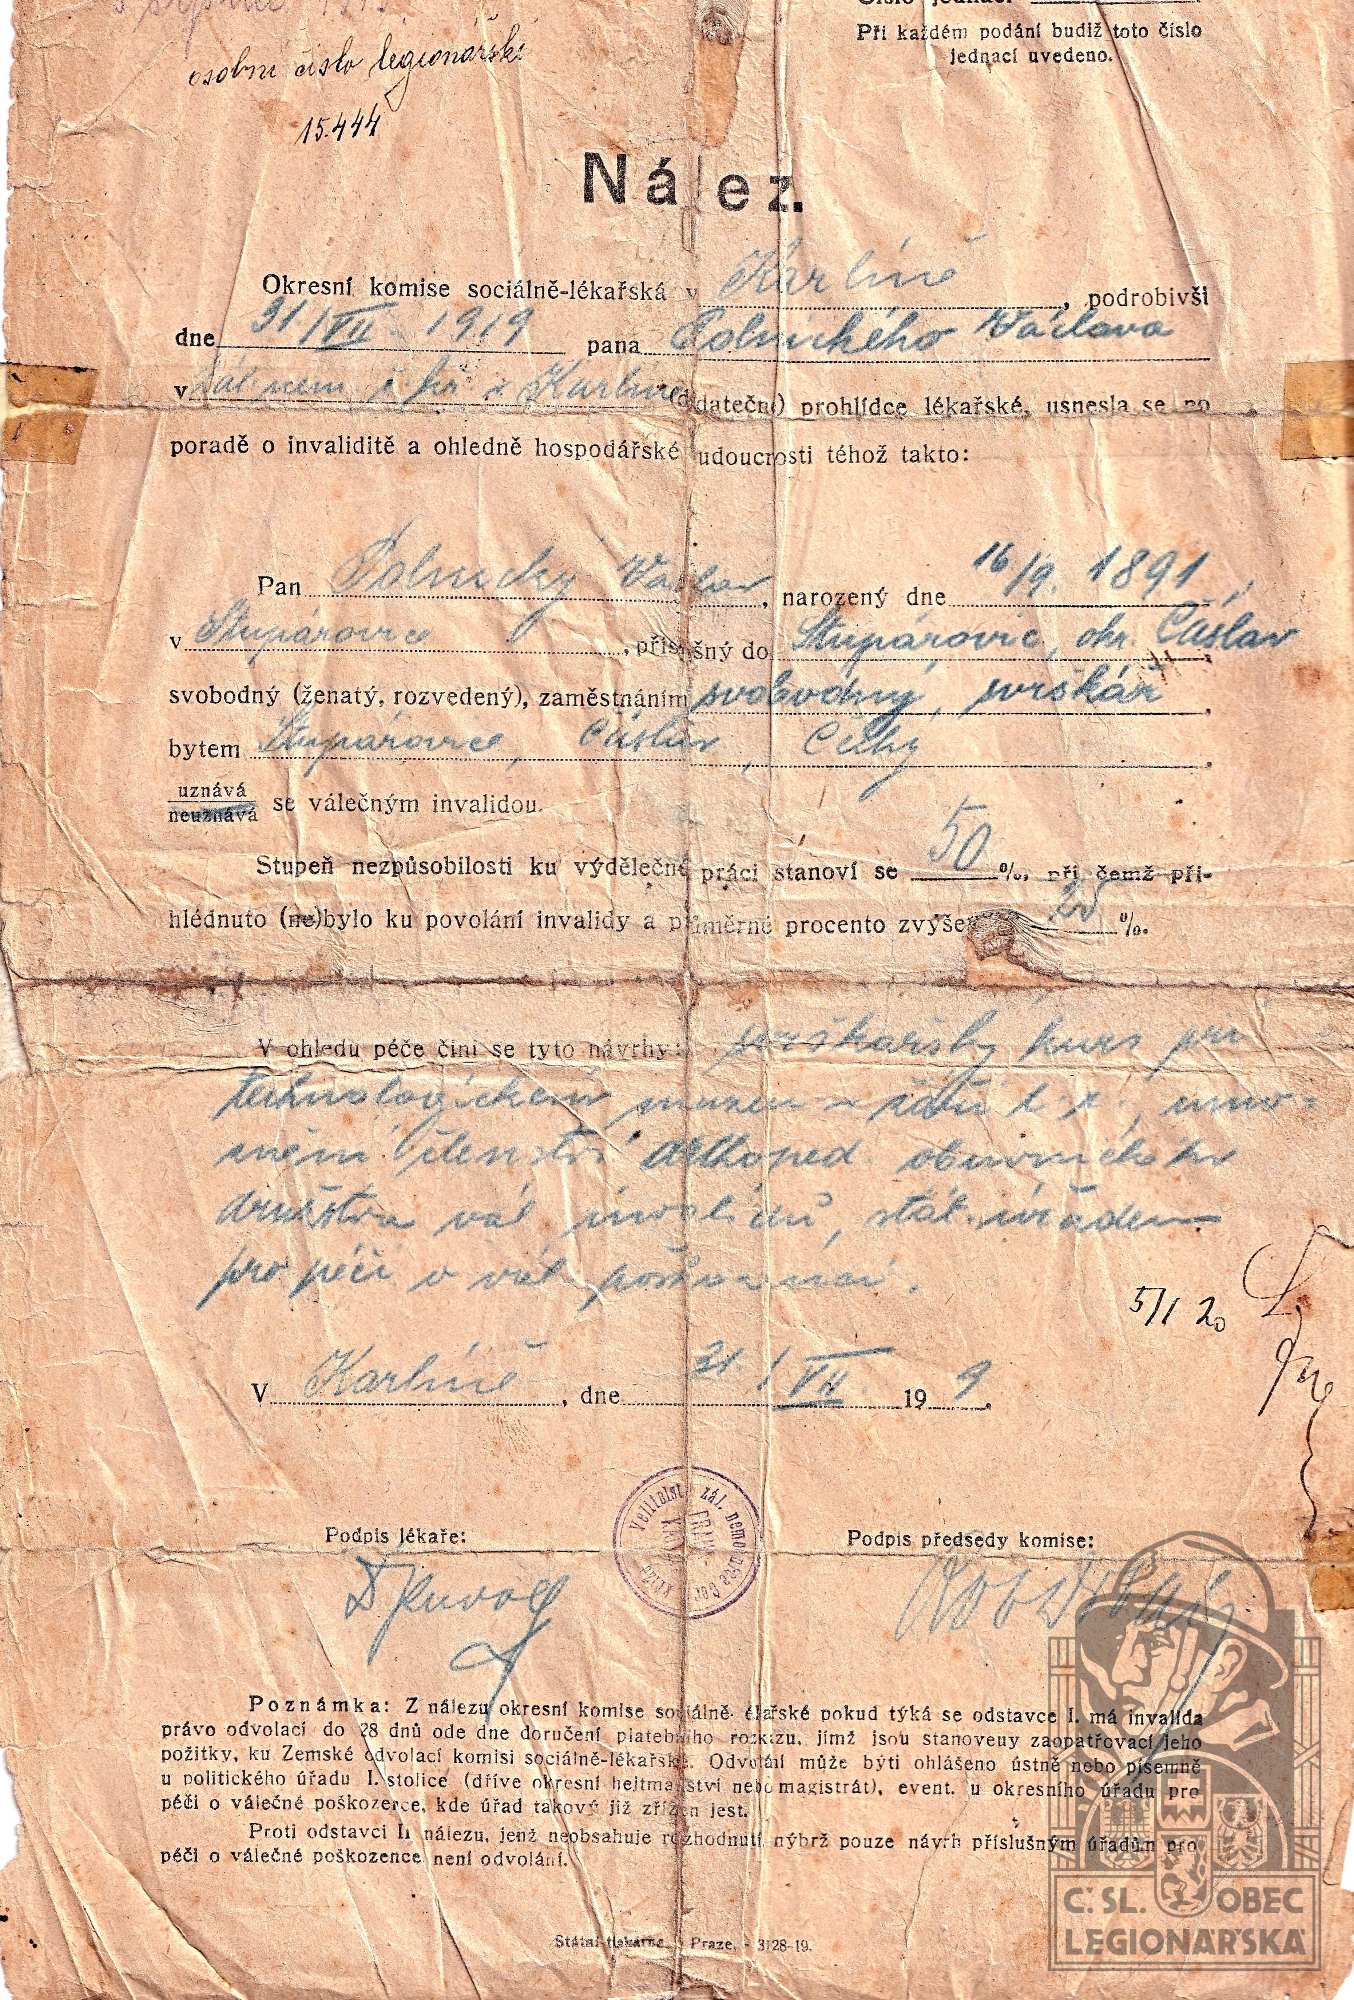 Číslo jednací
Při každém podání budiž toto číslo
jednací uvedeno.
osobní číslo legionářské
15.444
Nález.
Okresní komise sociálně-lékařská v Karlíně, podrobivši
dne 31./VII 1919 pana Polnického Václava
v zál. nem. v Karlíně (dodatečné) prohlídce lékařské, usnesla se po
poradě o invaliditě a ohledně hospodářské budoucnosti téhož takto:
Pan Polnický Václav, narozený dne 16/9. 1891,
v Stupárovice, příslušný do Stupárovic, okr. Čáslav
svobodný (ženatý, rozvedený), zaměstnáním svobodný, svrškář
bytem Stupárovice, Čáslav, Čechy
uznává
neuznává se válečným invalidou.
Stupeň nezpůsobilosti ku výdělečné práci stanoví se 50 %, při čemž při-
hlédnuto (ne)bylo ku povolání invalidy a průměrné procento zvýšeno %.
V ohledu péče činí se tyto návrhy: svrškařský kurs při
technologickém museu
členství orthoped. obuvnického
družstva vál. invalidů, stát. úřadem
pro péči o vál. poškozence.
5/I 20
V Karlíně, dne 31./VII. 19 9.
Velitelství zál. nemocnice
Podpis lékaře:
Podpis předsedy komise:
Poznámka: Z nálezu okresní komise sociálně-lékařské pokud týká se odstavce I. má invalida
právo odvolací do 28 dnů ode dne doručení platebního rozkazu, jímž jsou stanoveny zaopatřovací jeho
požitky, ku Zemské odvolací komisi sociálně-lékařské. Odvolání může býti ohlášeno ústně nebo písemně
u politického úřadu I. stolice (dříve okresní hejtmanství nebo magistrát), event. u okresního úřadu pro
péči o válečné poškozence, kde úřad takový již zřízen jest.
Proti odstavci II. nálezu, jenž neobsahuje rozhodnutí nýbrž pouze návrh příslušným úřadům pro
péči o válečné poškozence není odvolání.
Státní tiskárna v Praze. - 3128-19.
Č. SL. OBEC
LEGIONÁŘSKÁ